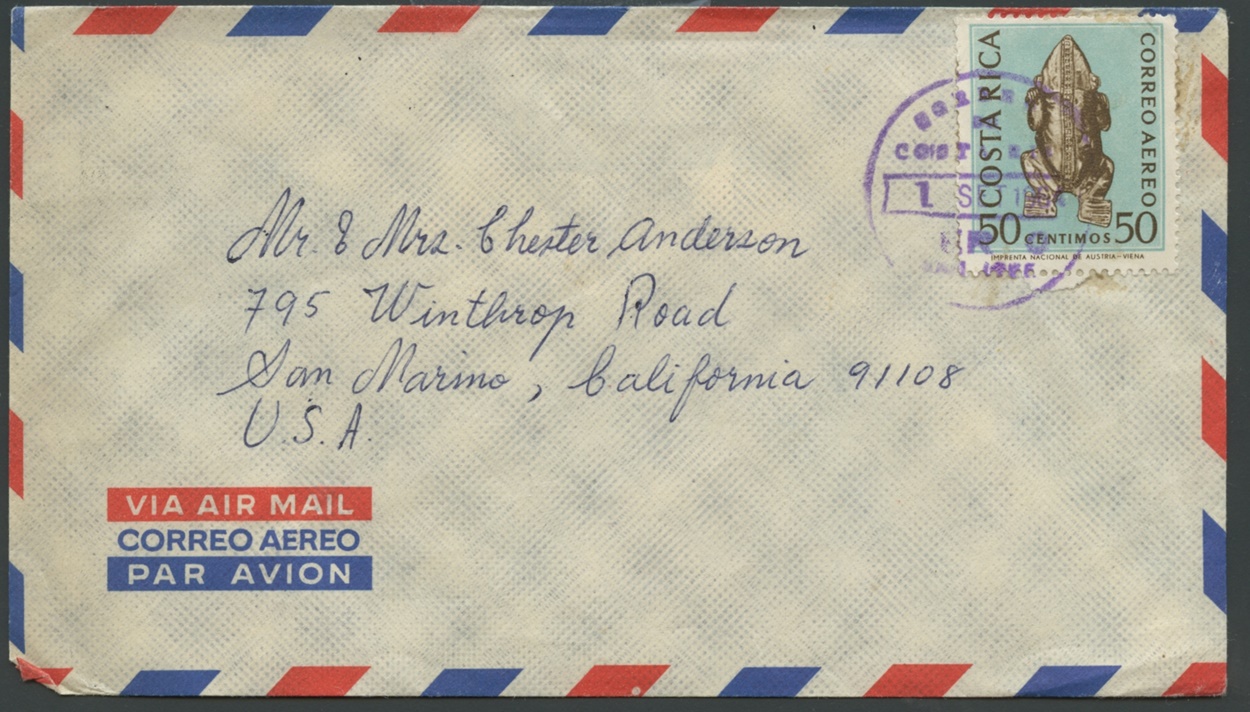 COSTA RICA
CORREO AEREO
50 CENTIMOS 50
IMPRENTA NACIONAL DE AUSTRIA - VIENA
1 SET
Mr. & Mrs. Chester Anderson
795 Winthrop Road
San Marino, California 91108
U.S.A.
VIA AIR MAIL
CORREO AEREO
PAR AVION